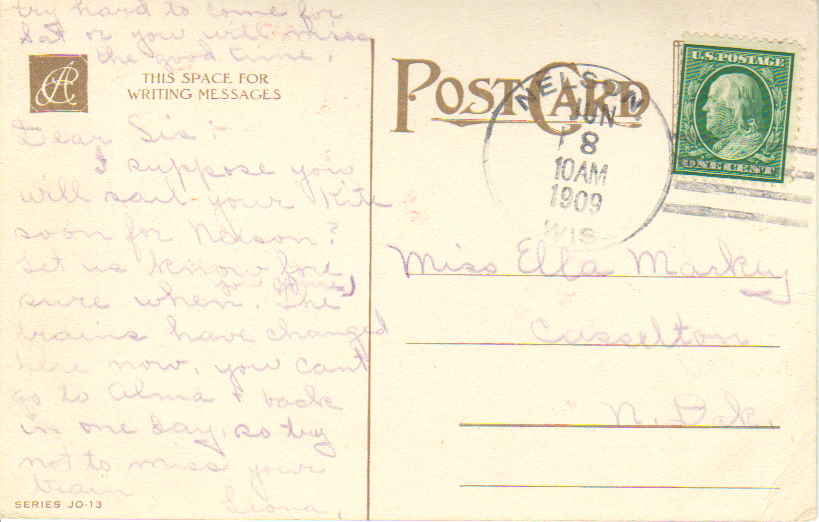 try hard to come for
Sat or you will miss
the good time.
THIS SPACE FOR
WRITING MESSAGES
Dear Sis:-
I suppose you
will sail your kite
soon for Nelson?
Let us know for
sure when (you come)
The
trains have changed
here now, you cant
go to Alma & back
in one day, so try
not to miss your
train
Leona,
SERIES JO-13
POST CARD
NELSON
JUN
8
10AM
1909
WIS
U.S. POSTAGE
ONE CENT
Miss Ella Markey
Casselton
N. Dak.